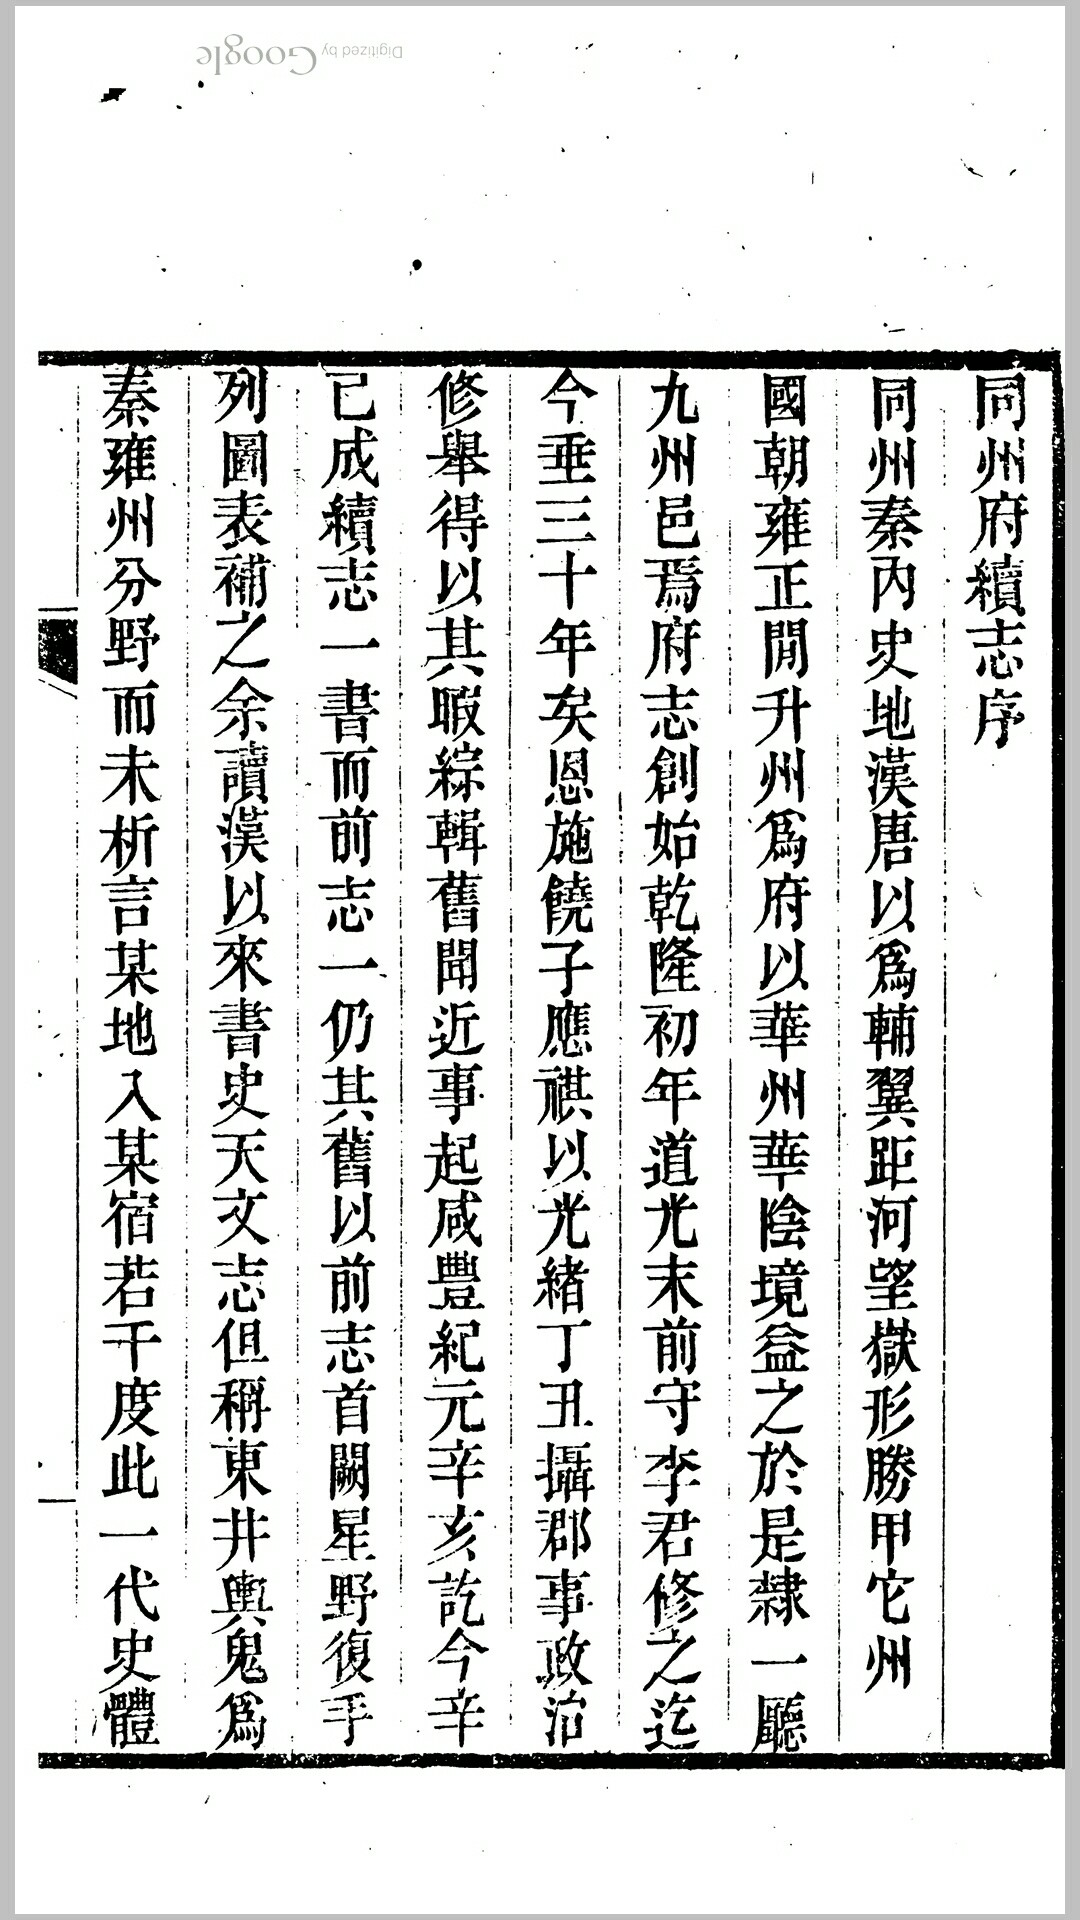 同州府續志序
同州秦內史地漢唐以爲輔翼距河望嶽形勝甲它州
國朝雍正閒升州爲府以華州華陰境益之於是隸一廳
九州邑焉府志創始乾隆初年道光末前守李君修之迄
今垂三十年矣恩施饒子應祺以光緒丁丑攝郡事政治
修舉得以其暇綜輯舊聞近事起咸豐紀元辛亥訖今辛
已成續志一書而前志一仍其舊以前志首闕星野復手
列圖表補之余讀漢以來書史天文志但稱東井輿鬼爲
秦雍州分野而未析言某地入某宿若干度此一代史體
一
Digitized by Google